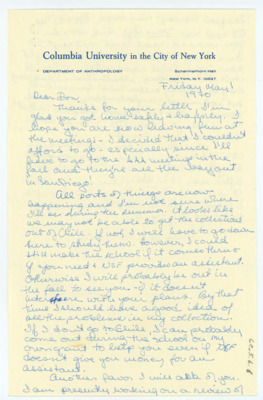 Columbia University in the City of New York
DEPARTMENT OF ANTHROPOLOGY
Schermerhorn Hall
New York, N.Y. 10027
Friday May 1
1970
Dear Don,
Thanks for your letter, I'm
glad you got home safely & happily. I
hope you are now having fun at
the meetings - I decided that I couldn't
afford to go - especially since I'll
have to go to the AAA meetings in the
fall and they're all the way out
in San Diego!
All sorts of things are now
happening and I'm not sure where
I'll be during the summer. It looks like
we may not be able to get the collections
out of Chile - if not, I will have to go down
there to study them. However, I could
still make the school if it comes through
if you need & NSF provides an assistant.
Otherwise I will probably be out in
the fall to see you - if it doesn't
interfere with your plans. By that
time I should have a good idea of
all the problems in my collection.
If I don't go to Chile, I can probably
come out during the school on my
own grant to help you even if NSF
doesn't give you money for an
assistant.
Another favor I will ask of you.
I am presently working on a review of